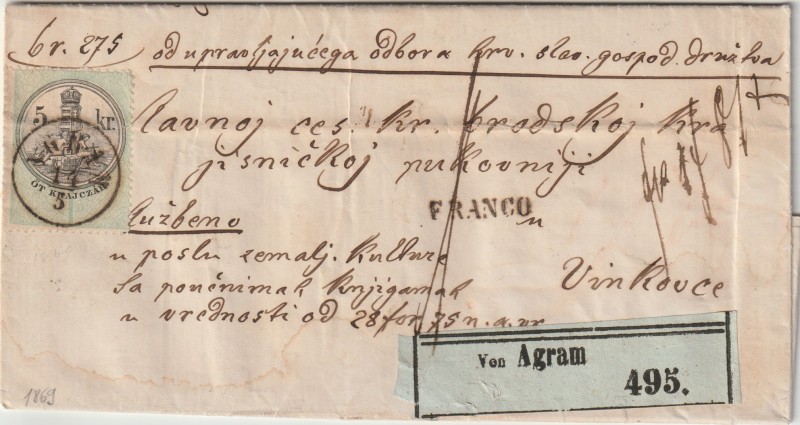 br. 275 od upravljajućega odbora hrv. slav. gospod. družtva
5 kr.
ÖT KRAJCZÁR
17
5
lavnoj ces. kr. brodskoj kra
jisničkoj pukovniji
FRANCO
lužbeno
u
u poslu zemalj. kulture
Vinkovce
sa poučnimah knjigamah
u vrednosti od 28 for 75 n. a. vr.
Von Agram
495.
1869